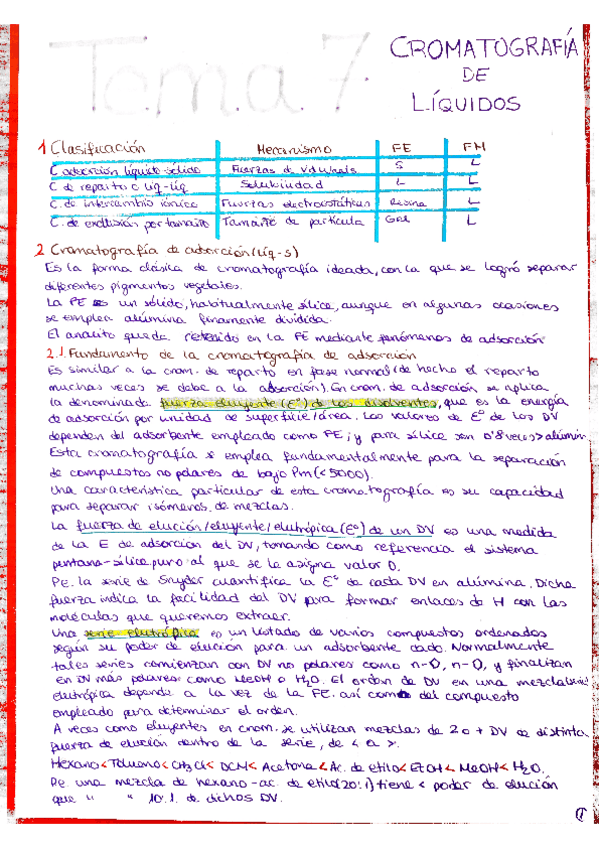 Tema 7.
CROMATOGRAFÍA
DE
LÍQUIDOS
1 Clasificación Mecanismo FE FM
C adsorción líquido sólido Fuerzas de VdWaals S L
C de reparto o líq-líq Solubilidad L L
C. de intercambio iónico Fuerzas electrostáticas Resina L
C. de exclusión por tamaño Tamaño de partícula Gel L
2 Cromatografía de adsorción (líq-s)
Es la forma clásica de cromatografía ideada, con la que se logró separar
diferentes pigmentos vegetales.
La FE es un sólido, habitualmente sílice, aunque en algunas ocasiones
se emplea alúmina finamente dividida.
El analito queda retenido en la FE mediante fenómenos de adsorción
2.1. Fundamento de la cromatografía de adsorción
Es similar a la crom. de reparto en fase normal (de hecho el reparto
muchas veces se debe a la adsorción). En crom. de adsorción se aplica
la denominada fuerza eluyente (E°) de los disolventes, que es la energía
de adsorción por unidad de superficie/área. Los valores de E° de los DV
dependen del adsorbente empleado como FE, y para sílice son 0'8 veces > alúmin
Esta cromatografía se emplea fundamentalmente para la separación
de compuestos no polares de bajo Pm (<5000).
Una característica particular de esta cromatografía es su capacidad
para separar isómeros de mezclas.
La fuerza de elución/eluyente/elutrópica (E°) de un DV es una medida
de la E de adsorción del DV, tomando como referencia el sistema
pentano-sílice puro al que se le asigna valor 0.
P.e. la serie de Snyder cuantifica la E° de cada DV en alúmina. Dicha
fuerza indica la facilidad del DV para formar enlaces de H con las
moléculas que queremos extraer.
Una serie elutrópica es un listado de varios compuestos ordenados
según su poder de elución para un adsorbente dado. Normalmente
tales series comienzan con DV no polares como n-O, n-O, y finalizan
en DV más polares como MeOH o H2O. El orden de DV en una
elutrópica depende a la vez de la FE. así como del compuesto
empleado para determinar el orden.
A veces como eluyentes en crom. se utilizan mezclas de 2 o + DV de distinta
fuerza de elución dentro de la serie, de < a >.
Hexano < Tolueno < CH3Cl < DCM < Acetona < Ac. de etilo < EtOH < MeOH < H2O.
Pe. una mezcla de hexano-ac. de etilo (20:1) tiene < poder de elución
que " " 10:1 de dichos DV.
1